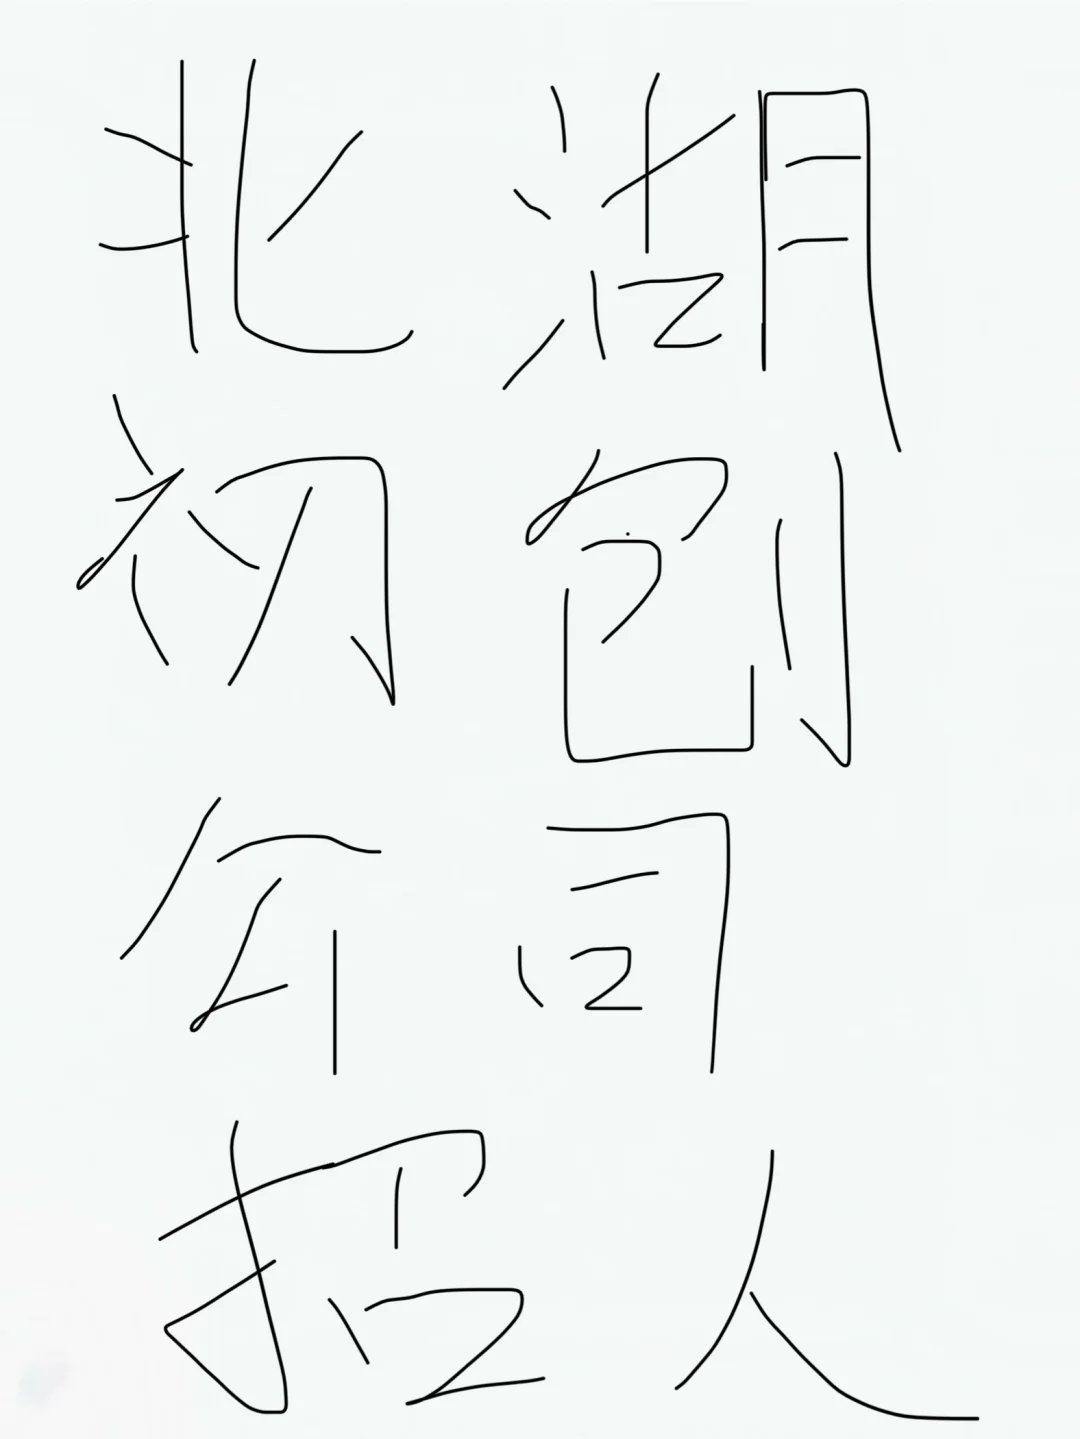 北湖
初创
公司
招人